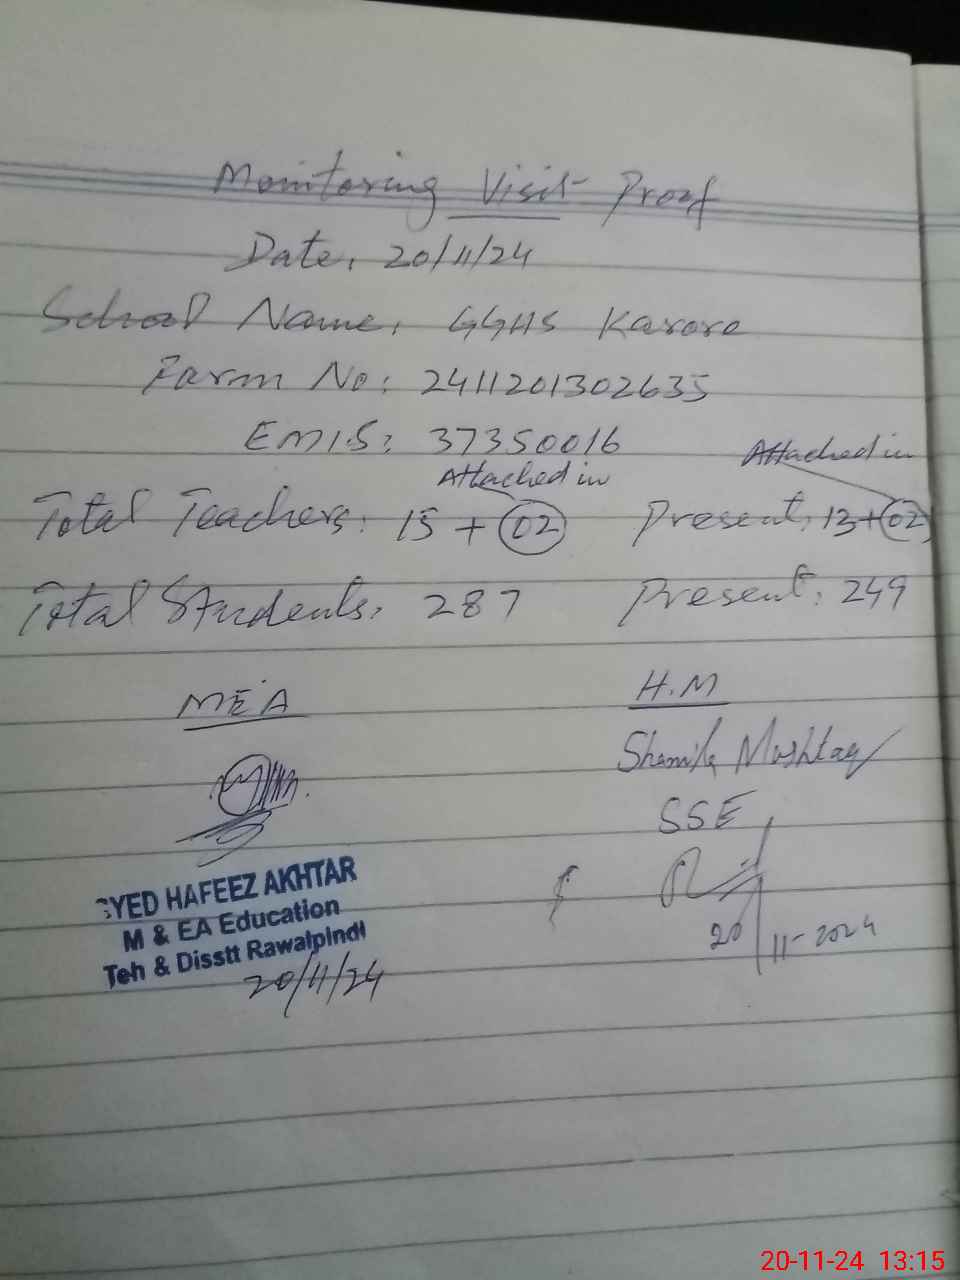 Monitoring Visit Proof
Date: 20/11/24
School Name: GGHS Karore
Farm No: 2411201302635
EMIS: 37350016
Attached in
Attached in
Total Teachers: 15 + 02 Present: 13+02
Total Students: 287 Present: 249
MEA H.M
Mushtaq
SSE
SYED HAFEEZ AKHTAR
M & EA Education
Teh & Disstt Rawalpindi
20/11/24
20/11-2024
20-11-24 13:15